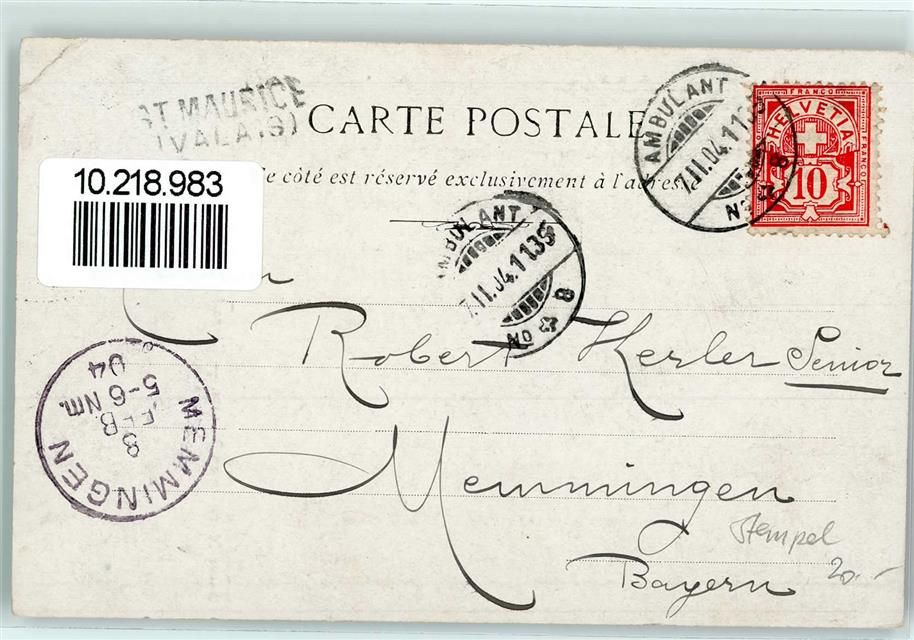 ST MAURICE
(VALAIS)
CARTE POSTALE
côté est réservé exclusivement à l'adresse
10.218.983
AMBULANT
7.II.04.11
No
FRANCO
HELVETIA
10
AMBULANT
7.II.04.11
No
8
Robert Kerler Senior
MEMMINGEN
8
FEB.
5-6 Nm.
04
Memmingen
Bayern
Stempel
20.-